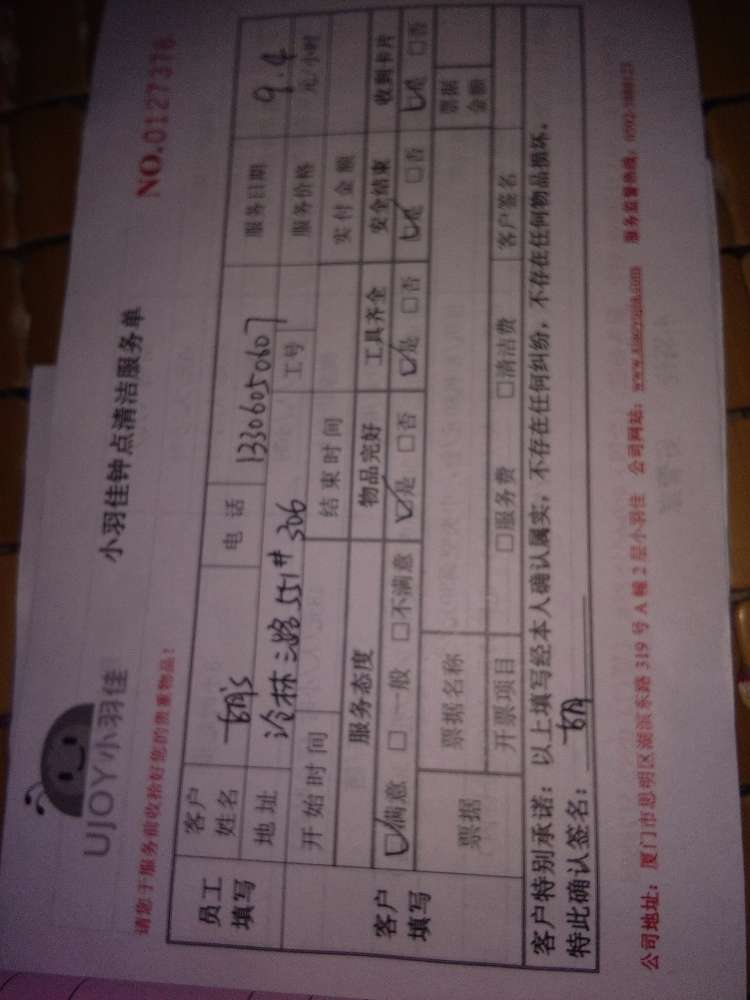 UJOY小羽佳
小羽佳钟点清洁服务单
NO.0127376
请您于服务前收拾好您的贵重物品!
员工填写 客户姓名 电话 13306050607 服务日期 9.4
地址 冷林三路551# 306 服务价格 元/小时
开始时间 结束时间 工号 实付金额
客户填写 服务态度 物品完好 工具齐全 安全结束 收到卡片
☑满意 □一般 □不满意 ☑是 □否 ☑是 □否 ☑是 □否 ☑是 □否
票据 票据名称 票据金额
开票项目 □服务费 □清洁费 客户签名
客户特别承诺:以上填写经本人确认属实,不存在任何纠纷,不存在任何物品损坏。
特此确认签名:
公司地址:厦门市思明区湖滨东路319号A幢2层小羽佳 公司网站:www.xiaoyujia.com 服务监督热线: